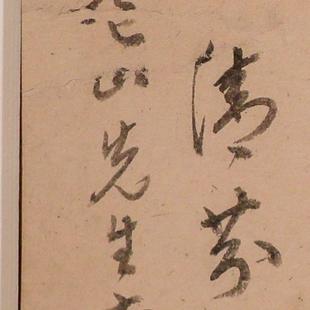 清芬
山先生